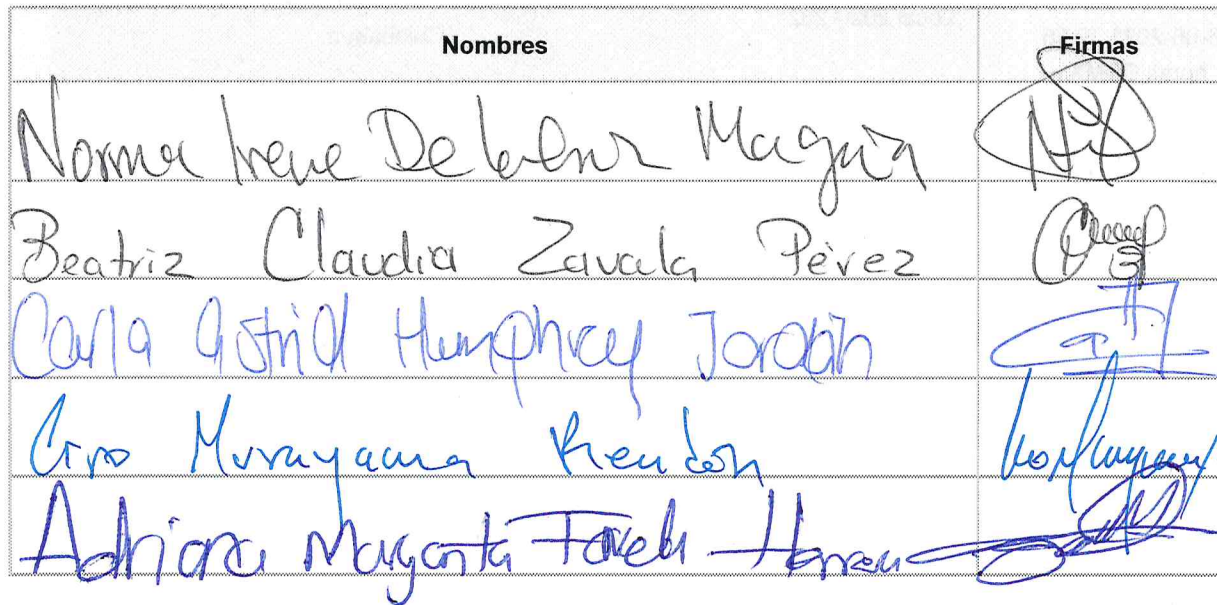 Nombres Firmas
Norma Irene De la Cruz Magaña
Beatriz Claudia Zavala Pérez
Carla Astrid Humphrey Jordán
Ciro Murayama Rendón
Adriana Margarita Favela Herrera